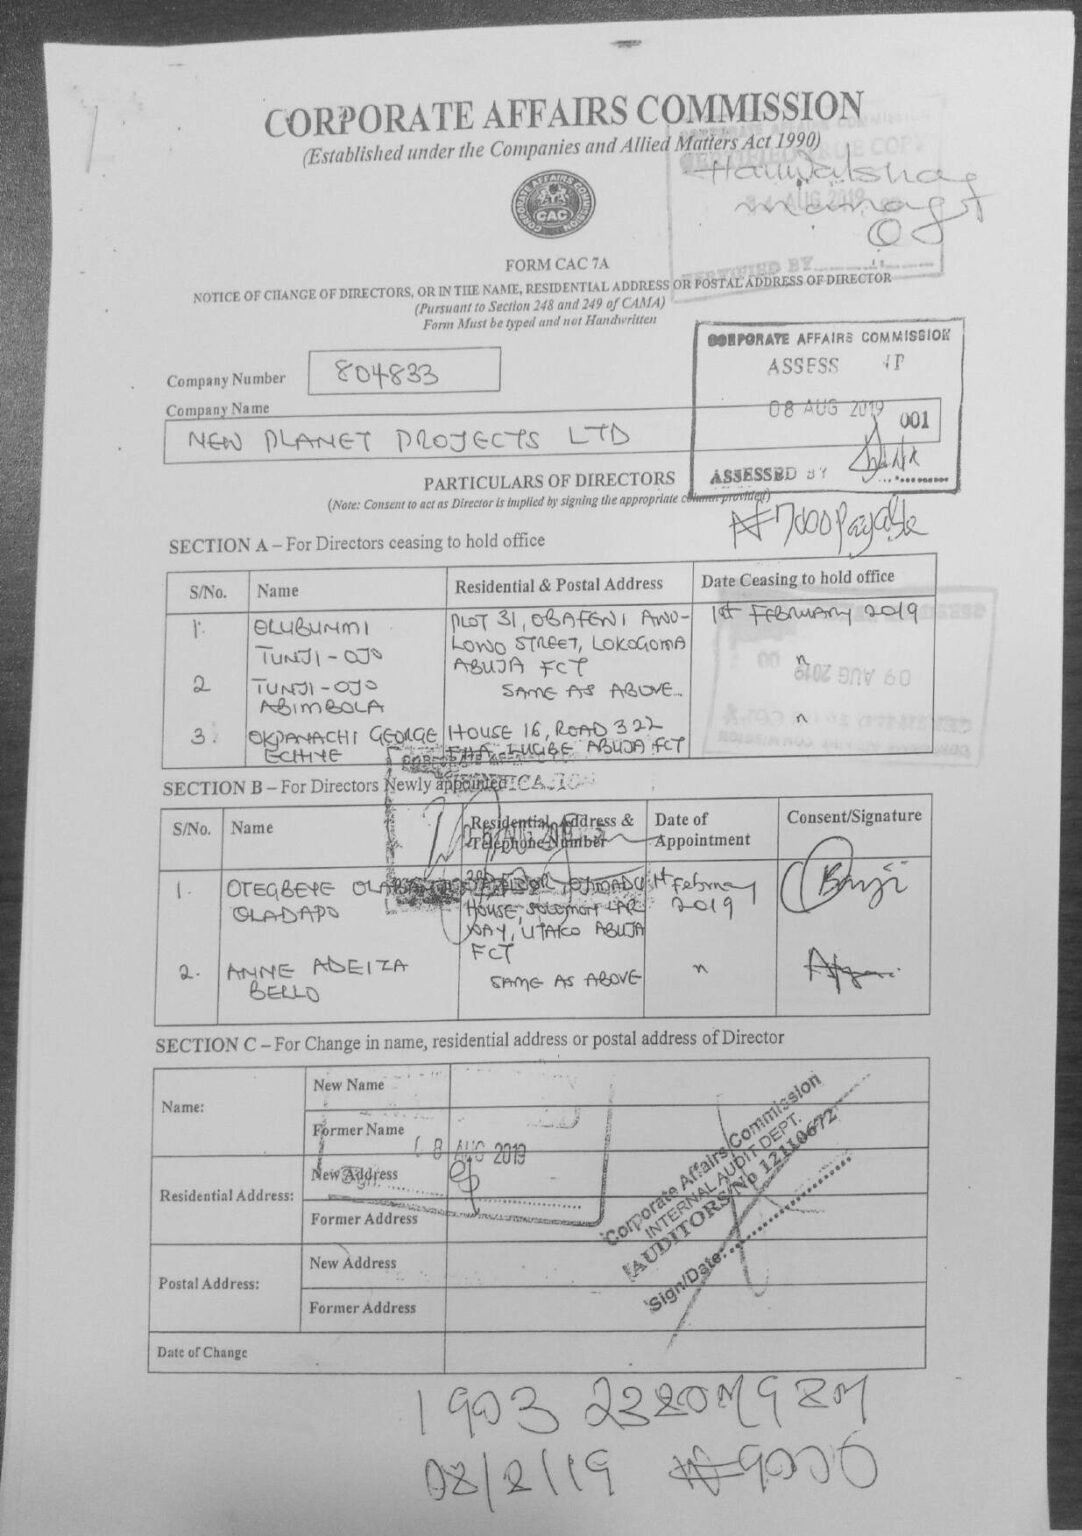 CORPORATE AFFAIRS COMMISSION
(Established under the Companies and Allied Matters Act 1990)
CORPORATE AFFAIRS COMMISSION
CAC
CERTIFIED TRUE COPY
AUG 2019
CERTIFIED BY
FORM CAC 7A
NOTICE OF CHANGE OF DIRECTORS, OR IN THE NAME, RESIDENTIAL ADDRESS OR POSTAL ADDRESS OF DIRECTOR
(Pursuant to Section 248 and 249 of CAMA)
Form Must be typed and not Handwritten
CORPORATE AFFAIRS COMMISSION
ASSESS
08 AUG 2019
001
ASSESSED BY
Company Number 804833
Company Name
NEW PLANET PROJECTS LTD
PARTICULARS OF DIRECTORS
(Note: Consent to act as Director is implied by signing the appropriate column provided)
₦7000 Payable
SECTION A – For Directors ceasing to hold office
S/No. Name Residential & Postal Address Date Ceasing to hold office
1. OLUBUNMI PLOT 31, OBAFEMI AWO- 1st FEBRUARY 2019
TUNJI-OJO LOWO STREET, LOKOGOMA
ABUJA FCT "
2 TUNJI-OJO SAME AS ABOVE
ABIMBOLA "
3. OKPANACHI GEORGE HOUSE 16, ROAD 322
ECHIYE FHA LUGBE ABUJA FCT
09 AUG 2019
SECTION B – For Directors Newly appointed
S/No. Name Residential Address & Telephone Number Date of Appointment Consent/Signature
1. OTEGBEYE FLOOR 1st February
OLADAPO HOUSE, SOLOMON LAR 2019
WAY, UTAKO ABUJA
FCT
2. ANNE ADEIZA SAME AS ABOVE "
BELLO
SECTION C – For Change in name, residential address or postal address of Director
Name: New Name
Former Name
08 AUG 2019
Residential Address: New Address
Former Address
Postal Address: New Address
Former Address
Date of Change
Corporate Affairs Commission
INTERNAL AUDIT DEPT.
AUDITORS/No 12110672
Sign/Date:
08/8/19 ₦9000